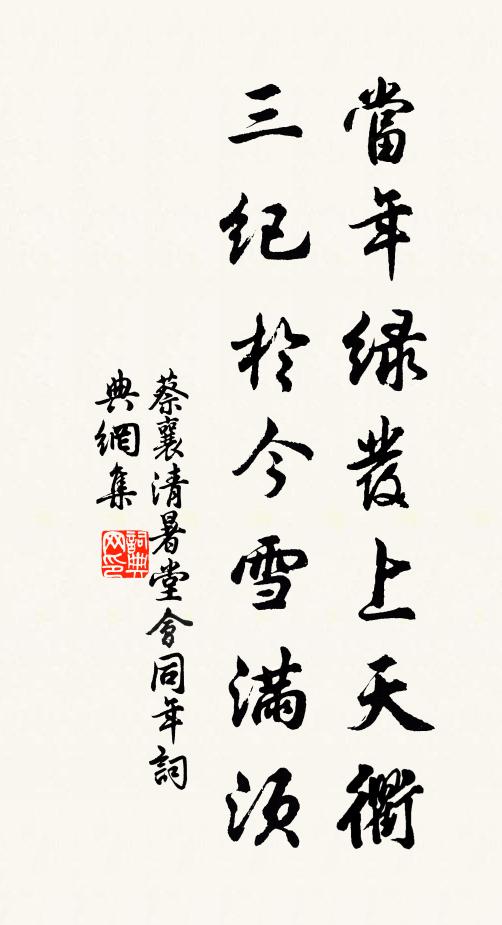 當年緑發上天衢
三紀於今雪滿須
蔡襄清暑堂會同年詞
典網集
詞典
网印